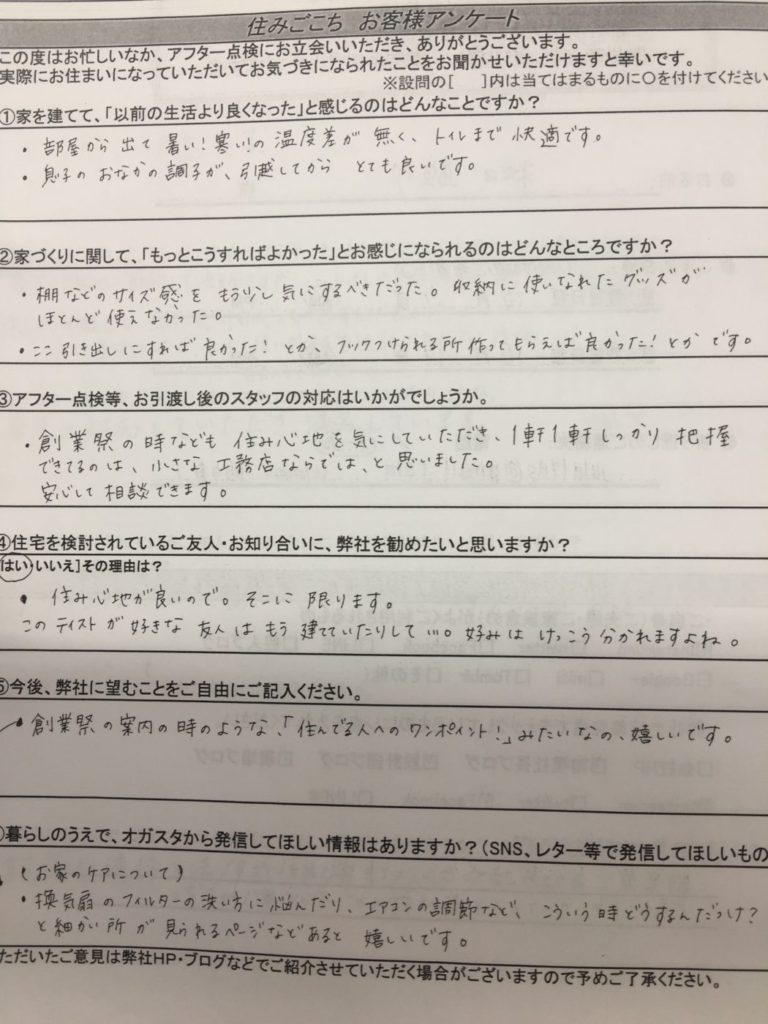 住みごこち お客様アンケート
この度はお忙しいなか、アフター点検にお立会いいただき、ありがとうございます。
実際にお住まいになっていただいてお気づきになられたことをお聞かせいただけますと幸いです。
※設問の[ ]内は当てはまるものに○を付けてください
①家を建てて、「以前の生活より良くなった」と感じるのはどんなことですか？
・部屋から出て 暑い！寒い！の 温度差が 無く、トイレまで 快適です。
・息子の おなかの調子が、引越してから とても良いです。
②家づくりに関して、「もっとこうすればよかった」とお感じになられるのはどんなところですか？
・棚などのサイズ感を もう少し気にするべきだった。収納に使いなれたグッズが
ほとんど使えなかった。
・ここ引き出しにすれば良かった！とか、フックつけられる所作ってもらえば良かった！とかです。
③アフター点検等、お引渡し後のスタッフの対応はいかがでしょうか。
・創業祭の時なども 住み心地を気にしていただき、1軒1軒しっかり 把握
できてるのは、小さな工務店ならでは、と思いました。
安心して相談できます。
④住宅を検討されているご友人・お知り合いに、弊社を勧めたいと思いますか？
はい・いいえ]その理由は？
・住み心地が良いので。そこに 限ります。
このテイストが好きな 友人はもう建てていたりして…。好みはけっこう分かれますよね。
⑤今後、弊社に望むことをご自由にご記入ください。
・創業祭の案内の時のような、「住んでる人へのワンポイント！」みたいなの、嬉しいです。
暮らしのうえで、オガスタから発信してほしい情報はありますか？（SNS、レター等で発信してほしいもの
（お家のケアについて）
・換気扇のフィルターの洗い方に悩んだり、エアコンの調節など、こういう時どうするんだっけ？
と細かい所が見られるページなどあると 嬉しいです。
ただいたご意見は弊社HP・ブログなどでご紹介させていただく場合がございますので予めご了承ください。